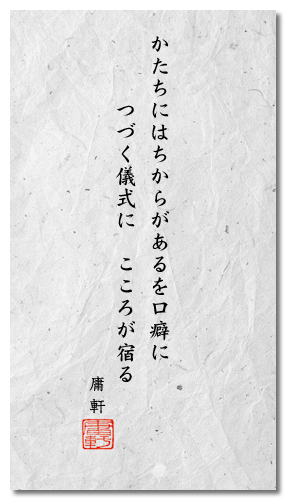 かたちにはちからがあるを口癖に
つづく儀式に　こころが宿る
庸軒